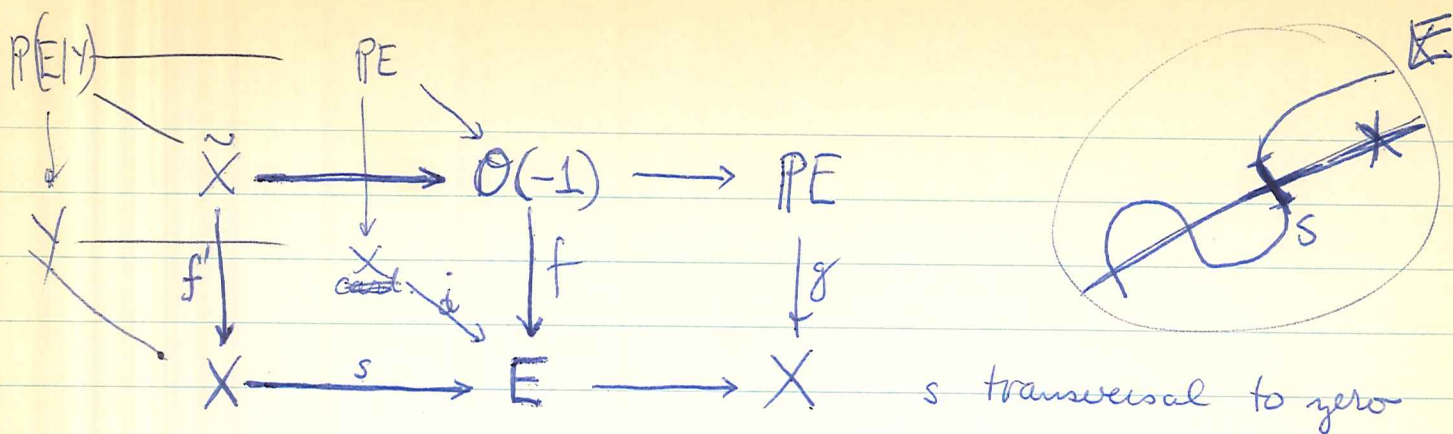 P(E|Y) PE
X̃ O(-1) PE
Y f' X f g
i
X s E X s transversal to zero
E
X
s